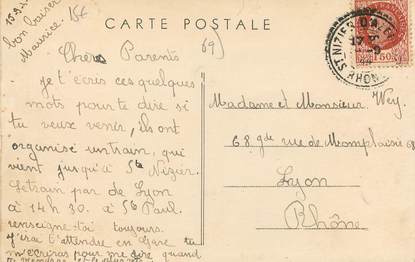 15-9-4
bon baiser
Maurice.
15€
CARTE POSTALE
69)
Chers Parents
je t'écres ces quelques
mots pour te dire si
tu veux venir, ils ont
organisé un train, qui
vient jusqu'à St Nizier.
Le train par de Lyon
à 14 h 30. à St Paul.
renseigne-toi toujours.
J'irai t'attendre en Gare tu
m'écriras pour me dire quand
Madame et Monsieur Wey.
68 gde rue de Monplaisir 68
Lyon
Rhône
ST NIZIER D'AZERGUES
RHÔNE
1F50